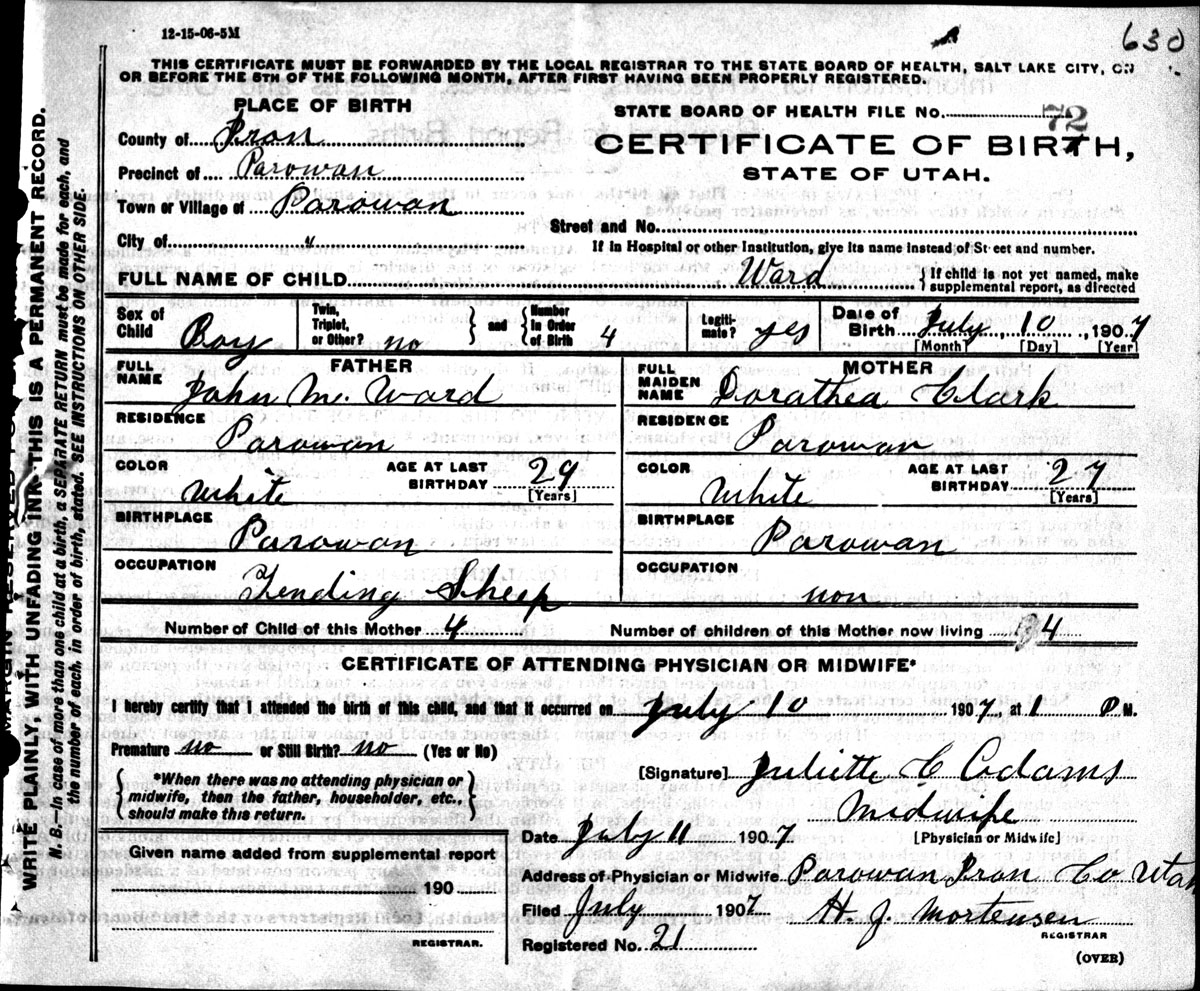 12-15-06-5M
630
THIS CERTIFICATE MUST BE FORWARDED BY THE LOCAL REGISTRAR TO THE STATE BOARD OF HEALTH, SALT LAKE CITY, ON
OR BEFORE THE 5TH OF THE FOLLOWING MONTH, AFTER FIRST HAVING BEEN PROPERLY REGISTERED.
PLACE OF BIRTH
County of Iron
Precinct of Parowan
Town or Village of Parowan
City of "
STATE BOARD OF HEALTH FILE No. 72
CERTIFICATE OF BIRTH,
STATE OF UTAH.
Street and No.
If in Hospital or other Institution, give its name instead of Street and number.
FULL NAME OF CHILD Ward { If child is not yet named, make supplemental report, as directed
Sex of Child Boy
Twin, Triplet, or Other? no } and { Number in Order of Birth 4
Legitimate? yes
Date of Birth July 10 1907
[Month] [Day] [Year]
FATHER
FULL NAME John M. Ward
RESIDENCE Parowan
COLOR White AGE AT LAST BIRTHDAY 29 [Years]
BIRTHPLACE Parowan
OCCUPATION Tending Sheep
MOTHER
FULL MAIDEN NAME Dorathea Clark
RESIDENCE Parowan
COLOR White AGE AT LAST BIRTHDAY 27 [Years]
BIRTHPLACE Parowan
OCCUPATION non
Number of Child of this Mother 4 Number of children of this Mother now living 4
CERTIFICATE OF ATTENDING PHYSICIAN OR MIDWIFE*
I hereby certify that I attended the birth of this child, and that it occurred on July 10 1907, at 1 P M.
Premature no or Still Birth? no (Yes or No)
{ *When there was no attending physician or
midwife, then the father, householder, etc.,
should make this return. }
[Signature] Juliette C Adams
Midwife
[Physician or Midwife]
Date July 11 1907
Given name added from supplemental report
190
REGISTRAR.
Address of Physician or Midwife Parowan Iron Co Utah
Filed July 1907 H. J. Mortensen
REGISTRAR
Registered No. 21
(OVER)
WRITE PLAINLY, WITH UNFADING INK-THIS IS A PERMANENT RECORD.
N. B.-In case of more than one child at a birth, a SEPARATE RETURN must be made for each, and
the number of each, in order of birth, stated. SEE INSTRUCTIONS ON OTHER SIDE.